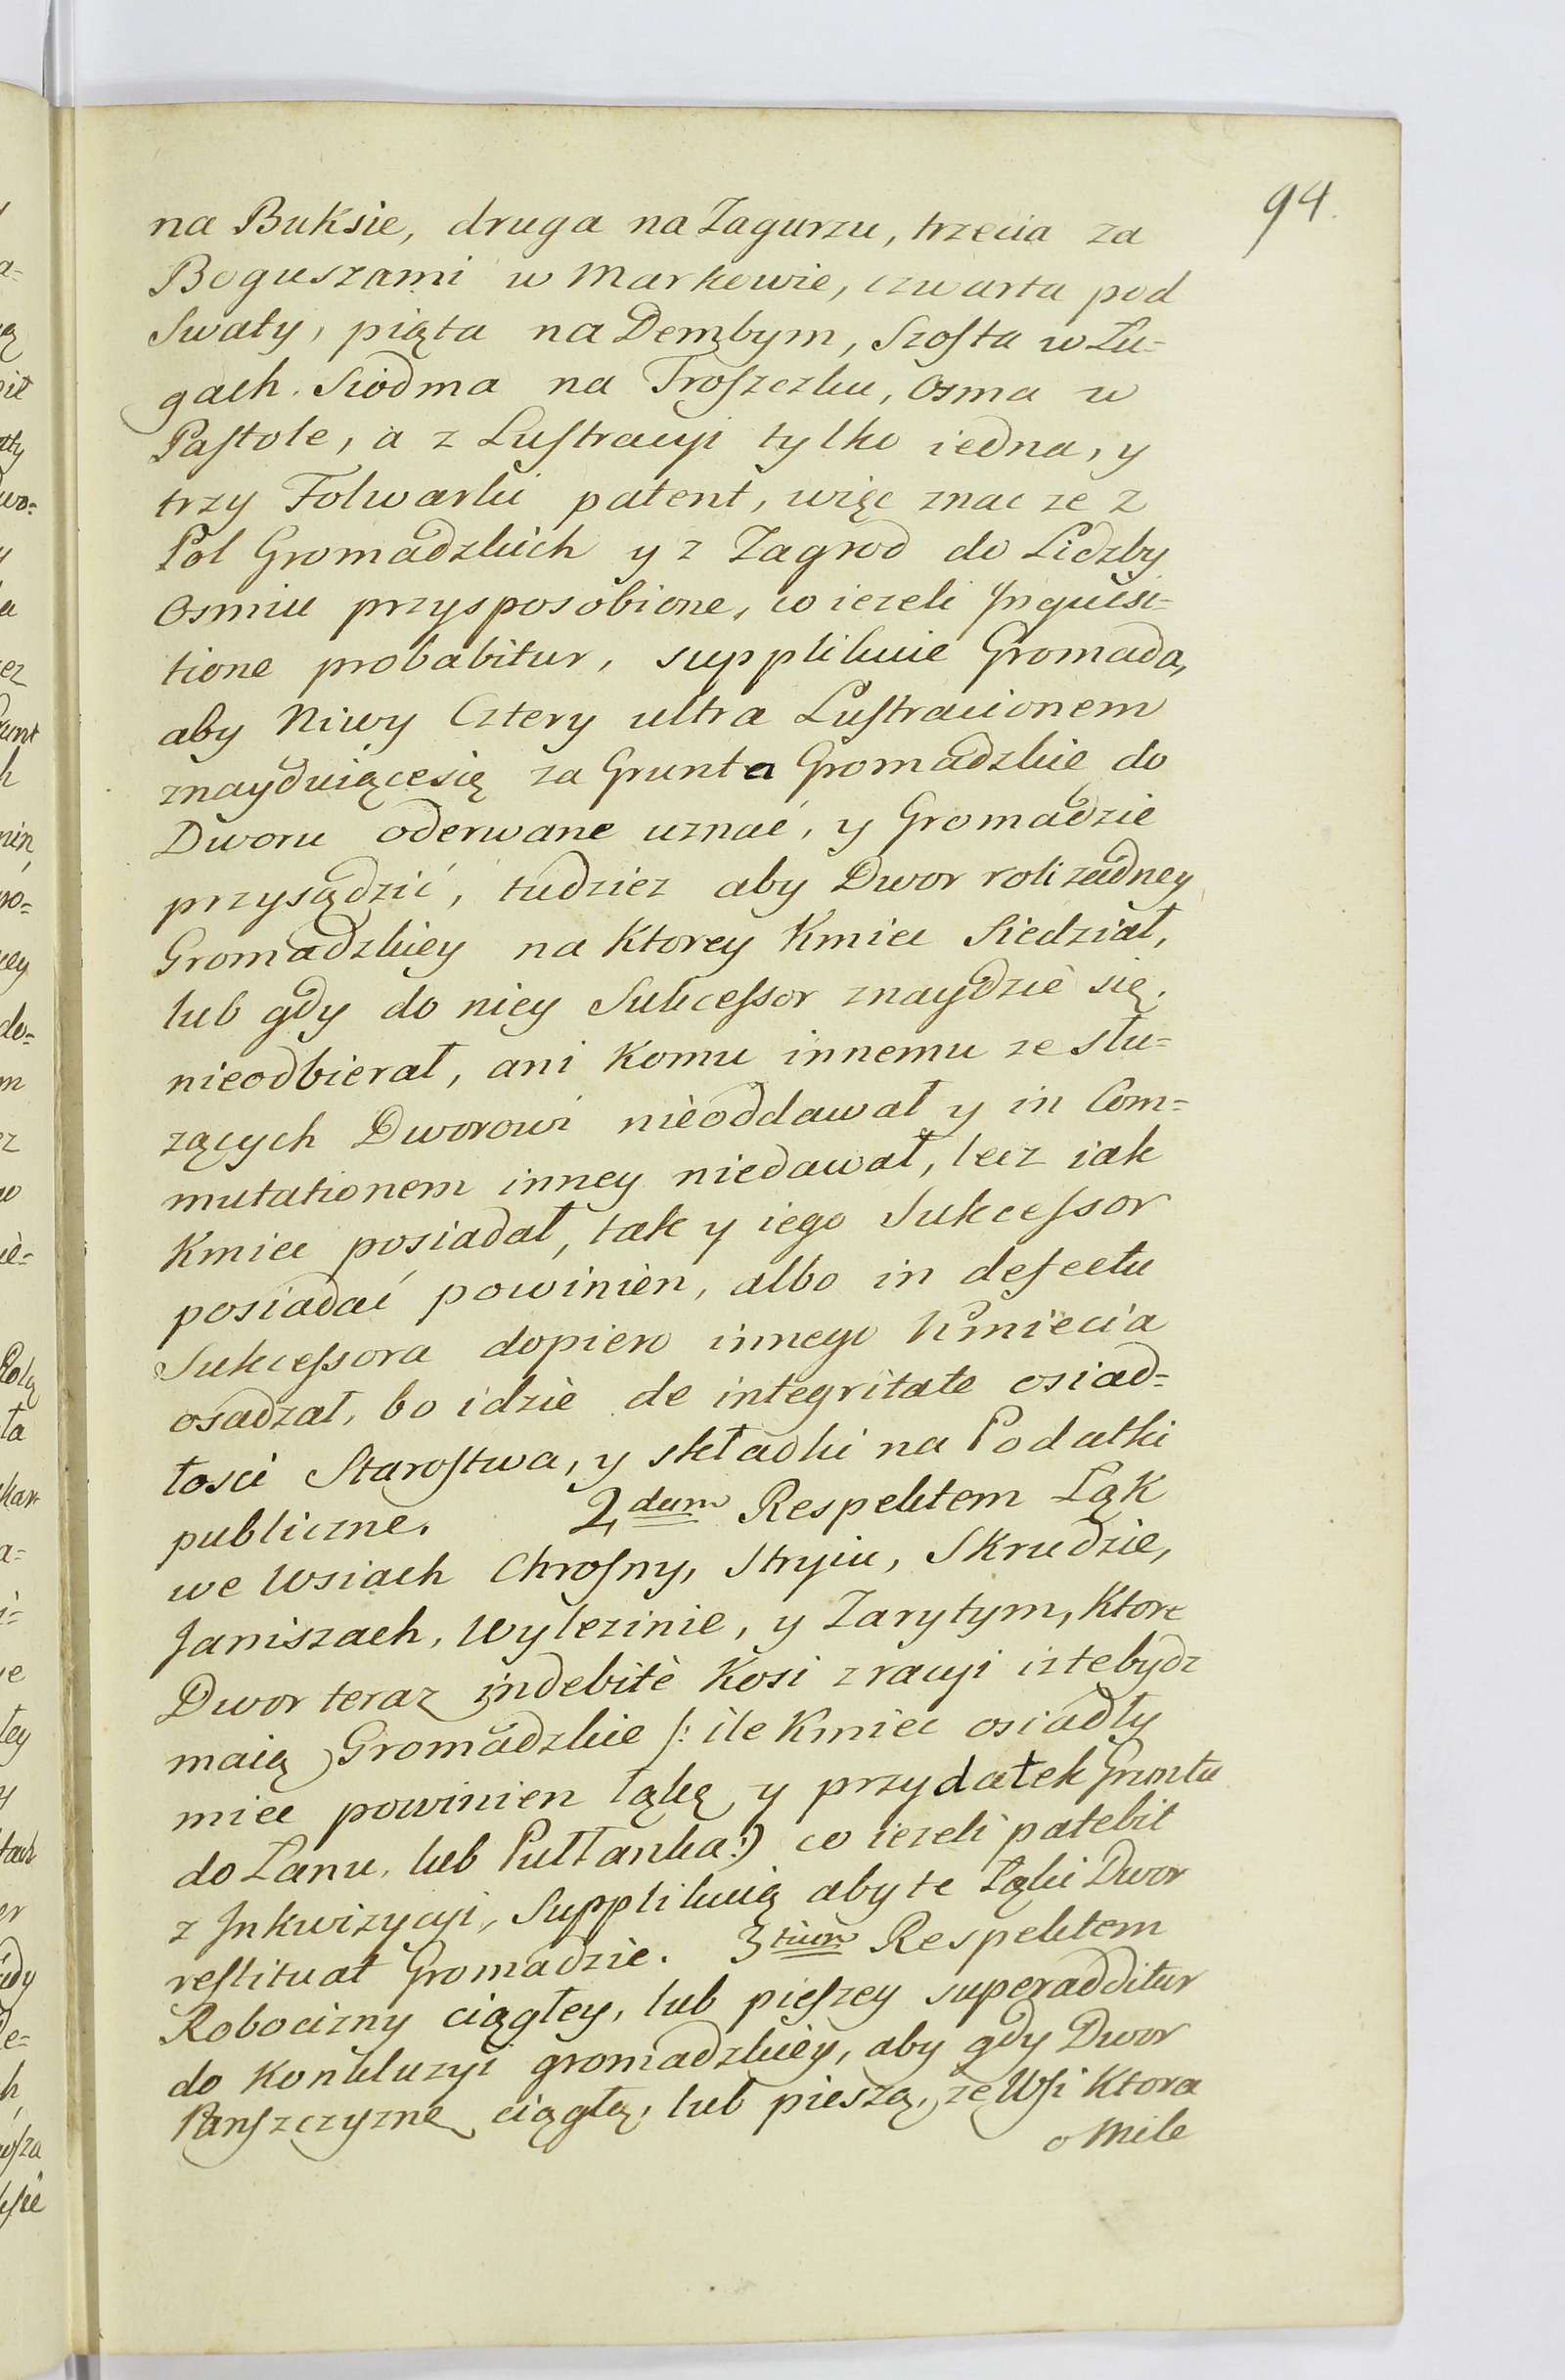 94.
na Buksie, druga na Zagurzu, trzecia za
Boguszami w Markowie, czwarta pod
Swaty, piąta na Dembym, Szosta w Łu=
gach. Siodma na Troszczku, Osma w
Pastole, a z Lustracyi tylko iedna, y
trzy Folwarki patent, więc znac ze z
Pol Gromadzkich y z Zagrod do Lidzby
Osmiu przysposobione, co iezeli Inquisi=
tione probabitur, supplikuie Gromada,
aby Niwy Cztery ultra Lustracionem
znayduiącesię za Grunta Gromadzkie do
Dworu oderwane uznać, y Gromadzie
przysądzić, tudziez aby Dwor roli zadney
Gromadzkiey na Ktorey Kmiec Siedział,
lub gdy do niey Sukcessor znaydzie się,
nieodbierał, ani Komu innemu ze słu=
zących Dworowi nieoddawał y in Com=
mutationem inney niedawał, lecz iak
Kmiec posiadał, tak y iego Sukcessor
posiadać powinien, albo in defectu
Sukcessora dopiero innego Kmiecia
osadzał, bo idzie de integritate osiad=
łosci Starostwa, y składki na Podatki
publiczne. 2dum Respektem Ląk
we Wsiach Chrosny, Stryiu, Skrudzie,
Janiszach, Wylezinie, y Zarytym, Ktore
Dwor teraz indebitè Kosi z racyi iztebydz
maią Gromadzkie /: ile Kmiec osiadły
miec powinien łąkę y przydatek Gruntu
do Łanu, lub Pułłanka:) co iezeli patebit
z Inkwizycyi, Supplikuią aby te Ląki Dwor
restituał Gromadzie. 3tium Respektem
Robocizny ciągłey, lub pieszey superadditur
do Konkluzyi gromadzkiey, aby gdy Dwor
Panszczyznę ciągłą, lub pieszą, ze Wsi Ktora
o Mile